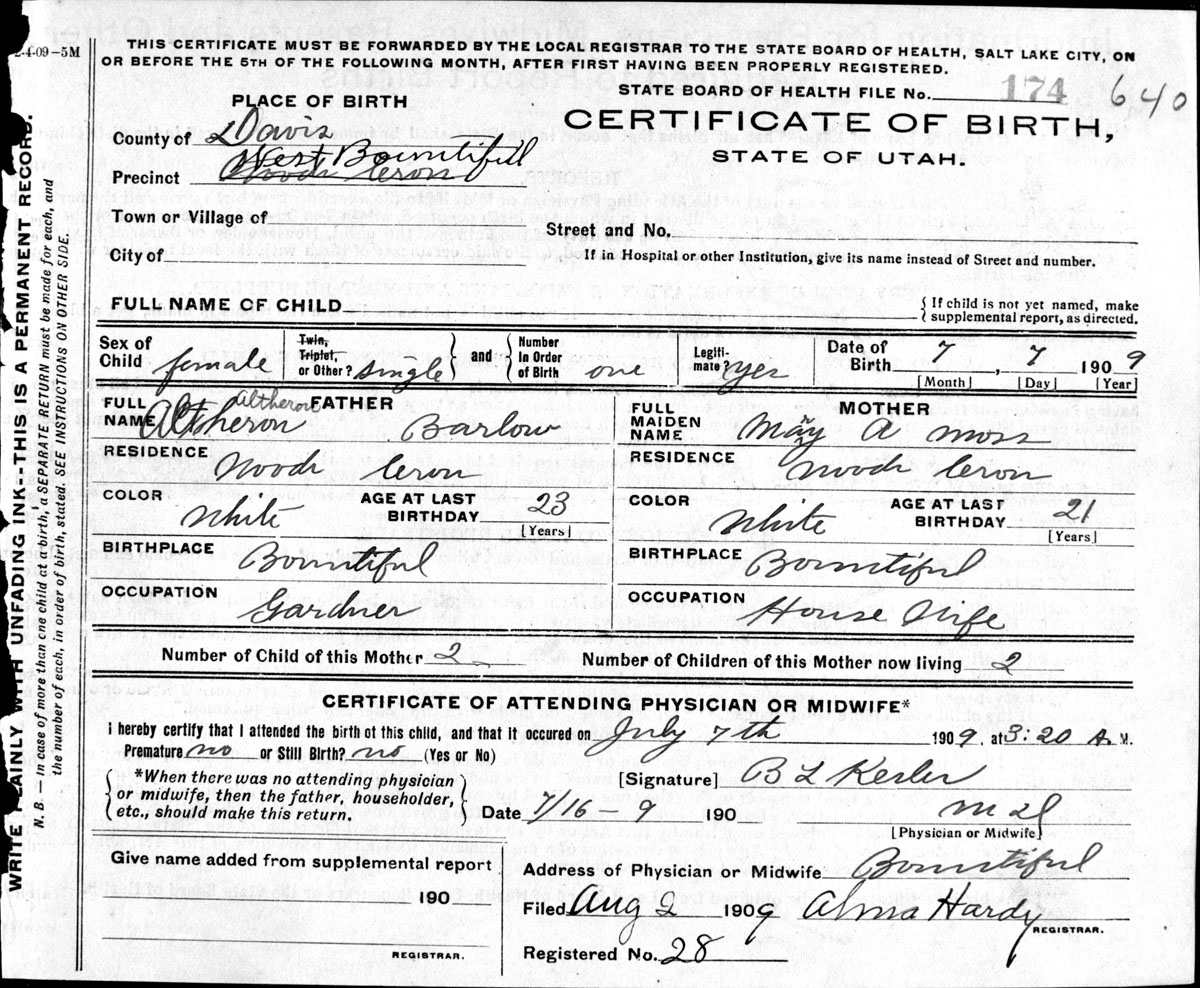 2-4-09-5M
THIS CERTIFICATE MUST BE FORWARDED BY THE LOCAL REGISTRAR TO THE STATE BOARD OF HEALTH, SALT LAKE CITY, ON
OR BEFORE THE 5TH OF THE FOLLOWING MONTH, AFTER FIRST HAVING BEEN PROPERLY REGISTERED.
STATE BOARD OF HEALTH FILE No. 174 640
PLACE OF BIRTH
CERTIFICATE OF BIRTH,
STATE OF UTAH.
County of Davis
West Bountifull
Precinct Woods Cross
Town or Village of
Street and No.
City of
If in Hospital or other Institution, give its name instead of Street and number.
FULL NAME OF CHILD
{ If child is not yet named, make
supplemental report, as directed.
Sex of Child female
Twin, Triplet, or Other? single
and
Number in Order of Birth one
Legiti-mate? yes
Date of Birth 7, 7 1909
[Month] [Day] [Year]
FATHER
FULL NAME Altheron Altheron Barlow
MOTHER
FULL MAIDEN NAME May A Moss
RESIDENCE Woods Cross
RESIDENCE Woods Cross
COLOR White
AGE AT LAST BIRTHDAY 23
[Years]
COLOR White
AGE AT LAST BIRTHDAY 21
[Years]
BIRTHPLACE Bountiful
BIRTHPLACE Bountiful
OCCUPATION Gardner
OCCUPATION House Wife
Number of Child of this Mother 2
Number of Children of this Mother now living 2
CERTIFICATE OF ATTENDING PHYSICIAN OR MIDWIFE*
I hereby certify that I attended the birth of this child, and that it occured on July 7th 1909, at 3:20 A. M.
Premature no or Still Birth? no (Yes or No)
*When there was no attending physician
or midwife, then the father, householder,
etc., should make this return.
[Signature] B L Kesler
Date 7/16 - 9 190
M D
[Physician or Midwife]
Give name added from supplemental report
190
REGISTRAR.
Address of Physician or Midwife Bountiful
Filed Aug 2 1909 Alma Hardy
REGISTRAR.
Registered No. 28
WRITE PLAINLY WITH UNFADING INK--THIS IS A PERMANENT RECORD.
N. B. — in case of more than one child at a birth, a SEPARATE RETURN must be made for each, and
the number of each, in order of birth, stated. SEE INSTRUCTIONS ON OTHER SIDE.